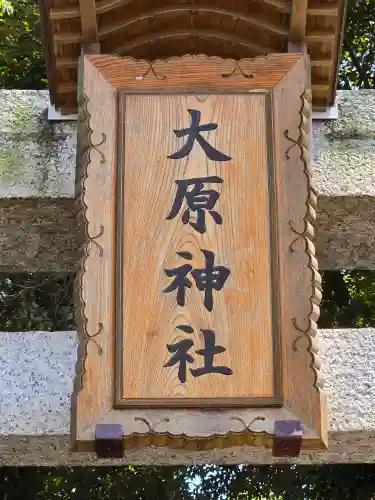 大原神社